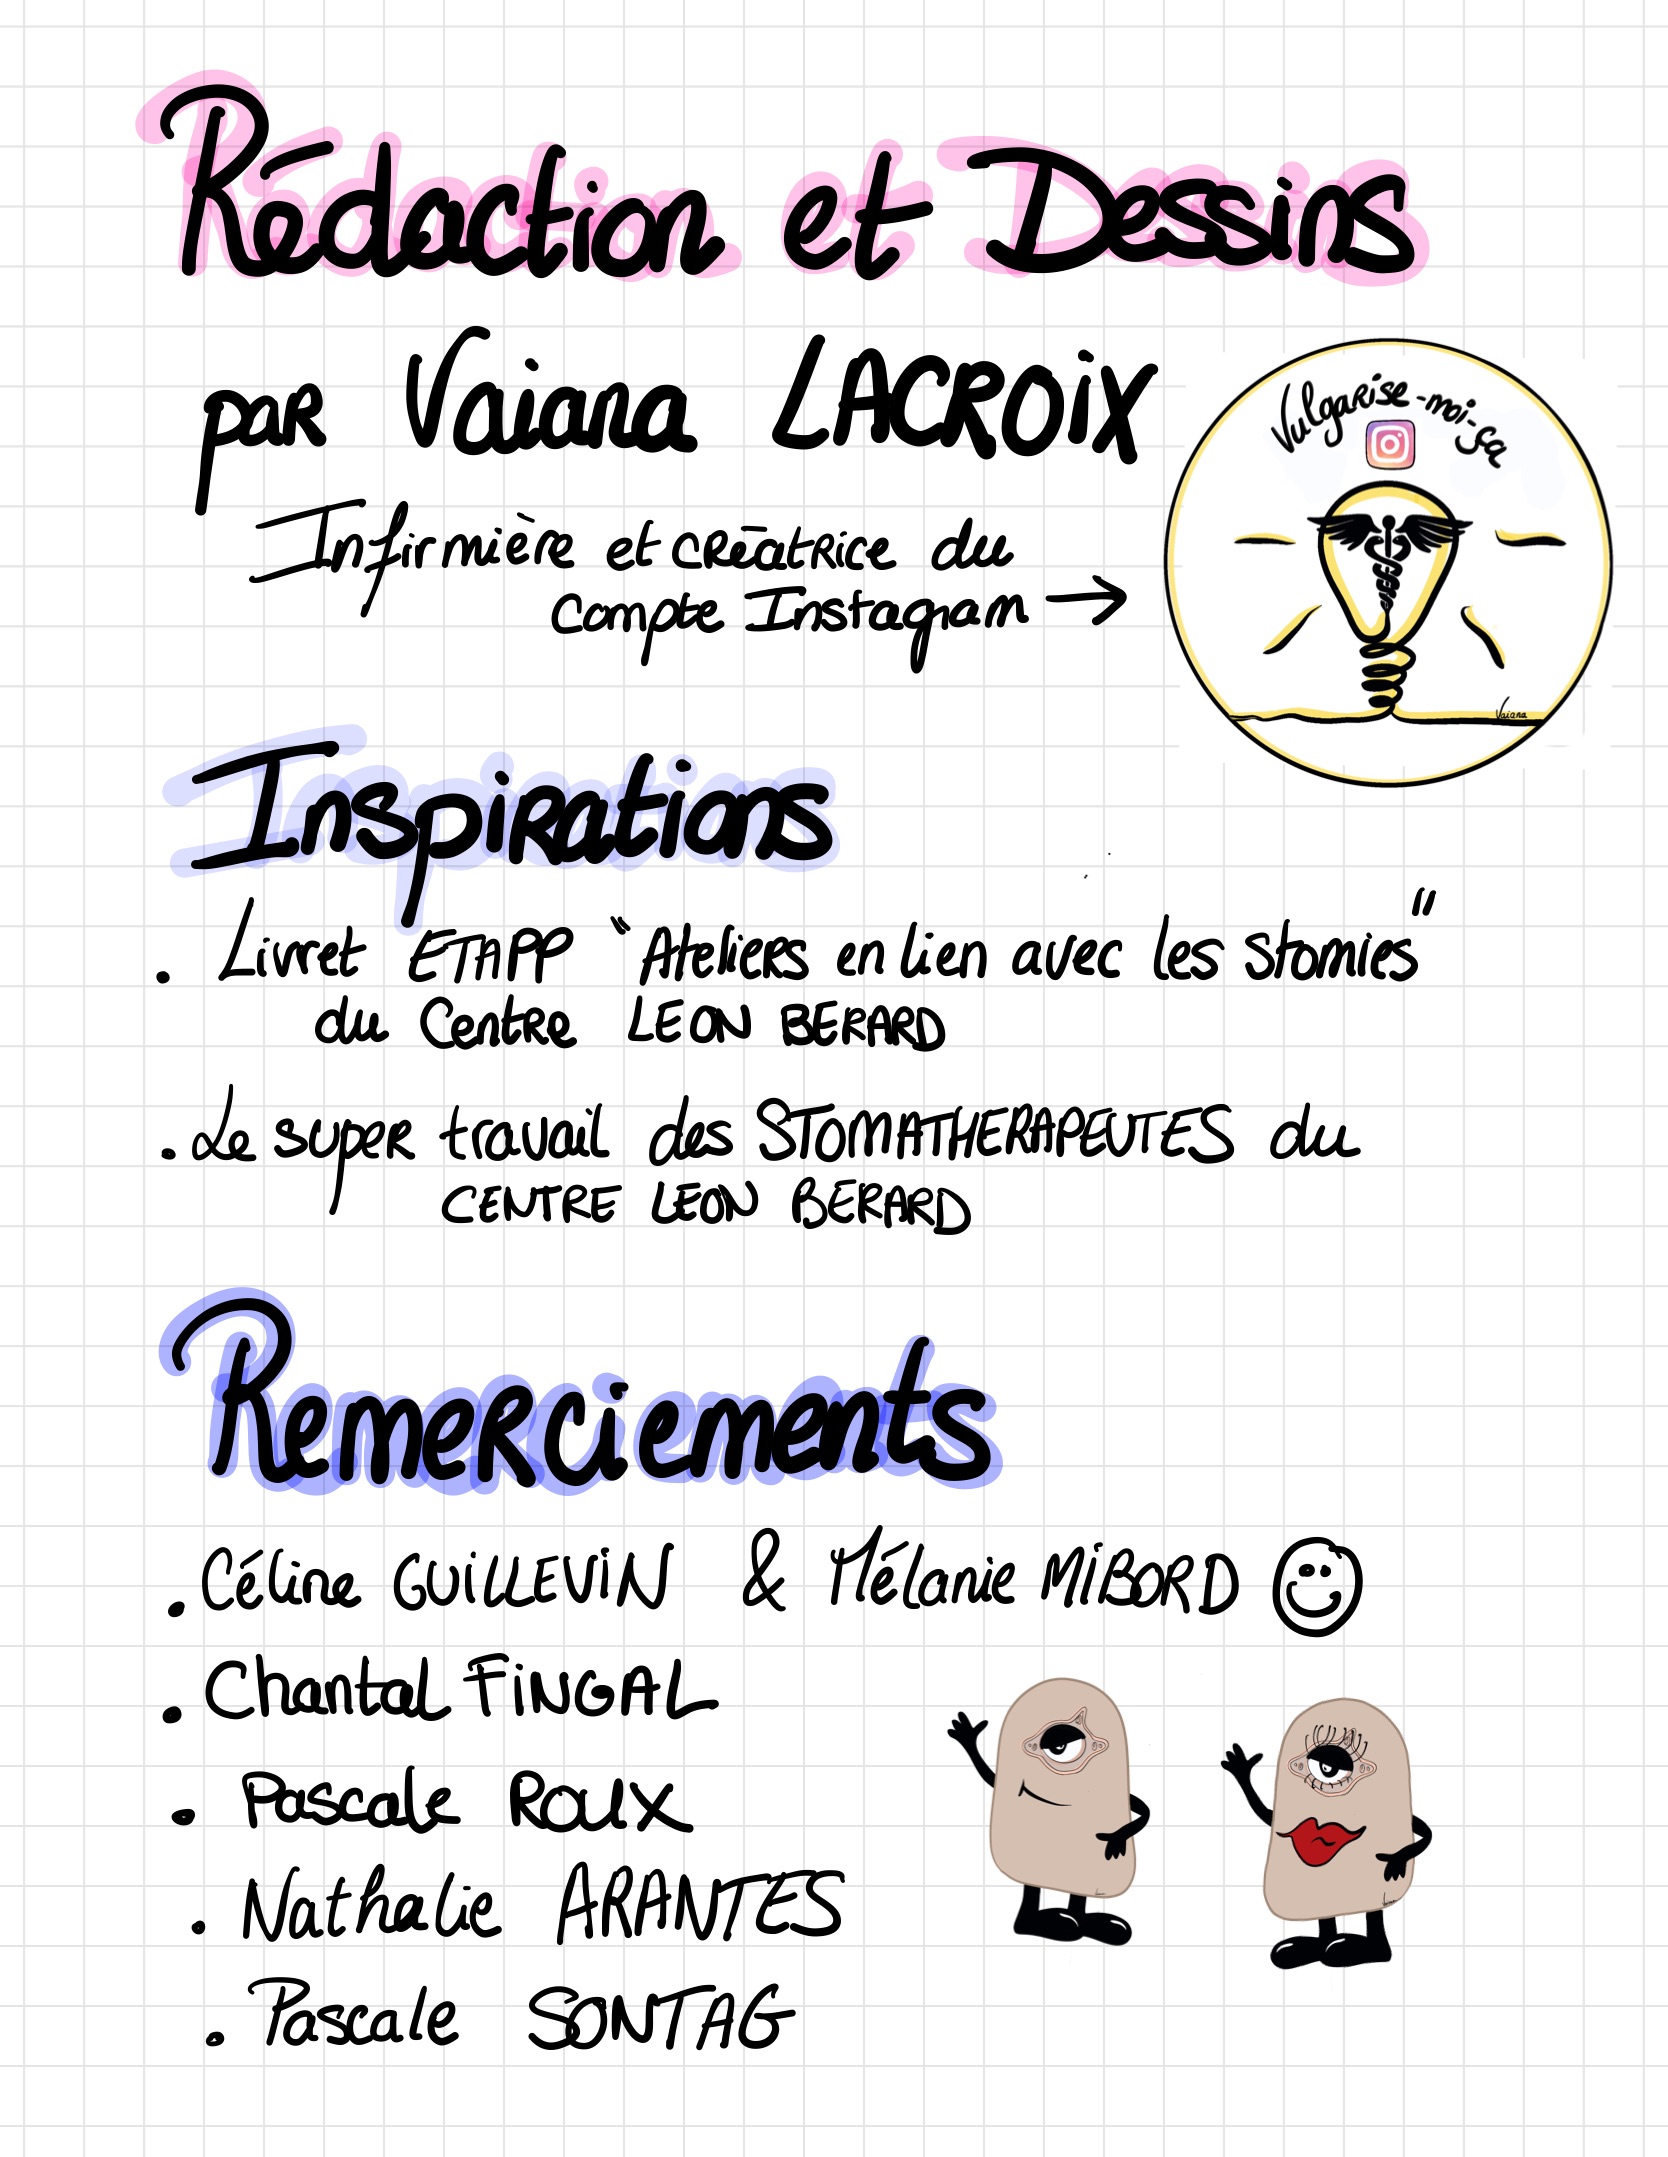 Rédaction et Dessins
par Vaiana LACROIX
Vulgarise-moi-ça
Infirmière et créatrice du
compte Instagram →
Vaiana
Inspirations
. Livret ETAPP "Ateliers en lien avec les Stomies"
du Centre LEON BERARD
. Le super travail des STOMATHERAPEUTES du
CENTRE LEON BERARD
Remerciements
. Céline GUILLEVIN & Mélanie MIBORD
. Chantal FINGAL
. Pascale ROUX
. Nathalie ARANTES
. Pascale SONTAG